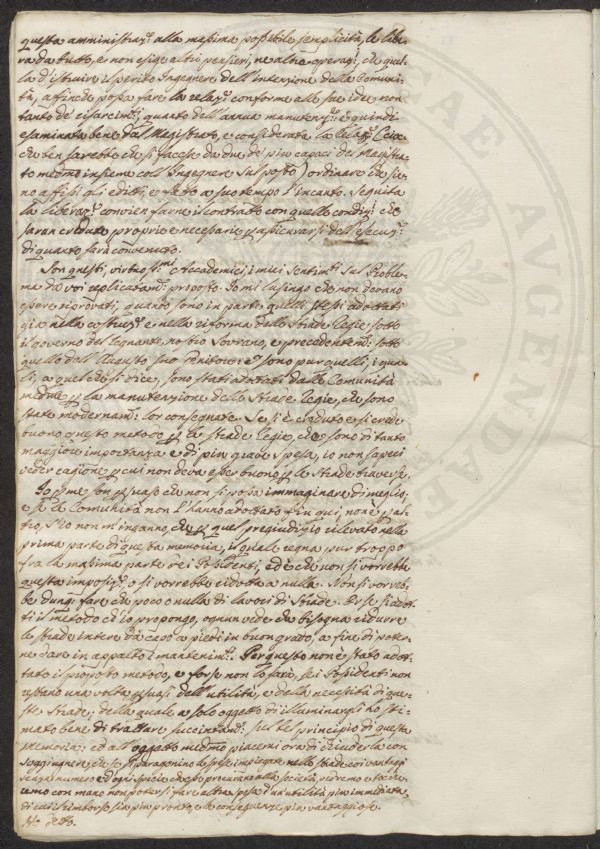 questa amministraz.e alla massima possibile semplicità, la libe-
ra da tutto, e non esige altri pensieri, ne altre operazi, che quel-
la d'istruire il perito Ingegnere dell'intenzione della Comuni-
tà, affinchè possa fare la relaz.e conforme alle sue idee non
tanto de' risarcim.ti, quanto dell'annua manutenz.e e quindi
esaminata bene dal Magistrato, e considerata la
che ben sarebbe che si facesse da due de' più capaci del Magistra-
to med.mo insieme coll'Ingegnere sul posto) ordinare che sie-
no affissi gli editti, e fatto a suo tempo l'incanto. Seguita
la liberaz.e convien farne il contratto con quelle condiz.i che
saran credute proprie e necessarie p assicurarsi dell'esecuz.e
di quanto sarà convenuto.
Son questi, virtuosi.mi Accademici, i miei sentim.ti sul Proble-
ma da voi replicatam.te proposto. Io mi lusingo che non devano
essere riprovati, quando sono in parte quelli stessi adottati
già nella costruz.e e nella riforma delle Strade Regie sotto
il governo del Regnante nostro Sovrano, e precedentem.te sott
quello dell'Augusto suo Genitore: e sono pur quelli, i qua-
li, a quel che si dice, sono stati adottati dalle Comunità
med.me p la manutenzione delle Strade Regie, che sono
state modernam.te lor consegnate. Se si è creduto e si crede
buono questo metodo p le strade Regie, che sono di tanto
maggiore importanza e di più grave spesa, io non saprei
veder cagione p cui non deva esser buono p le Strade traverse.
Io p me son psuaso che non si possa immaginare di meglio;
e se le Comunità non l'hanno adottato fin qui, non è p al-
tro, s'io non m'inganno, che p quel pregiudizio rilevato nella
prima parte di questa memoria, il quale regna pur troppo
fra la massima parte de' i Possidenti, ed è che non si vorrebbe
questa imposiz.e o si vorrebbe ridotta a nulla. Non si vorreb-
be dunq. fare che poco o nulla di lavori di Strade. Or se si adot-
ti il metodo ch'io propongo, ognun vede che bisogna ridurre
le strade intere da capo a piedi in buon grado, a fine di poter-
ne dare in appalto i mantenim.ti. Per questo non è stato adot-
tato il proposto metodo, e forse non lo sarà, se i Possidenti non
restano una volta psuasi dell'utilità, e della necessità di que-
ste strade; della quale a solo oggetto di illuminargli ho sti-
mato bene di trattare succintam.te sul bel principio di questa
memoria: ed all'oggetto med.mo piacemi ora di chiuderla con
soggiugnere che se si paragonino le spese impiegate nelle strade coi vantaggi
senza numero e d'ogni specie che esse procurano alla società, vedremo e tocche-
remo con mano non potersi fare altra spesa d'un'utilità più immediata
di cui il rimborso sia più pronto, e le conseguenze più vantaggiose.
Ho detto.